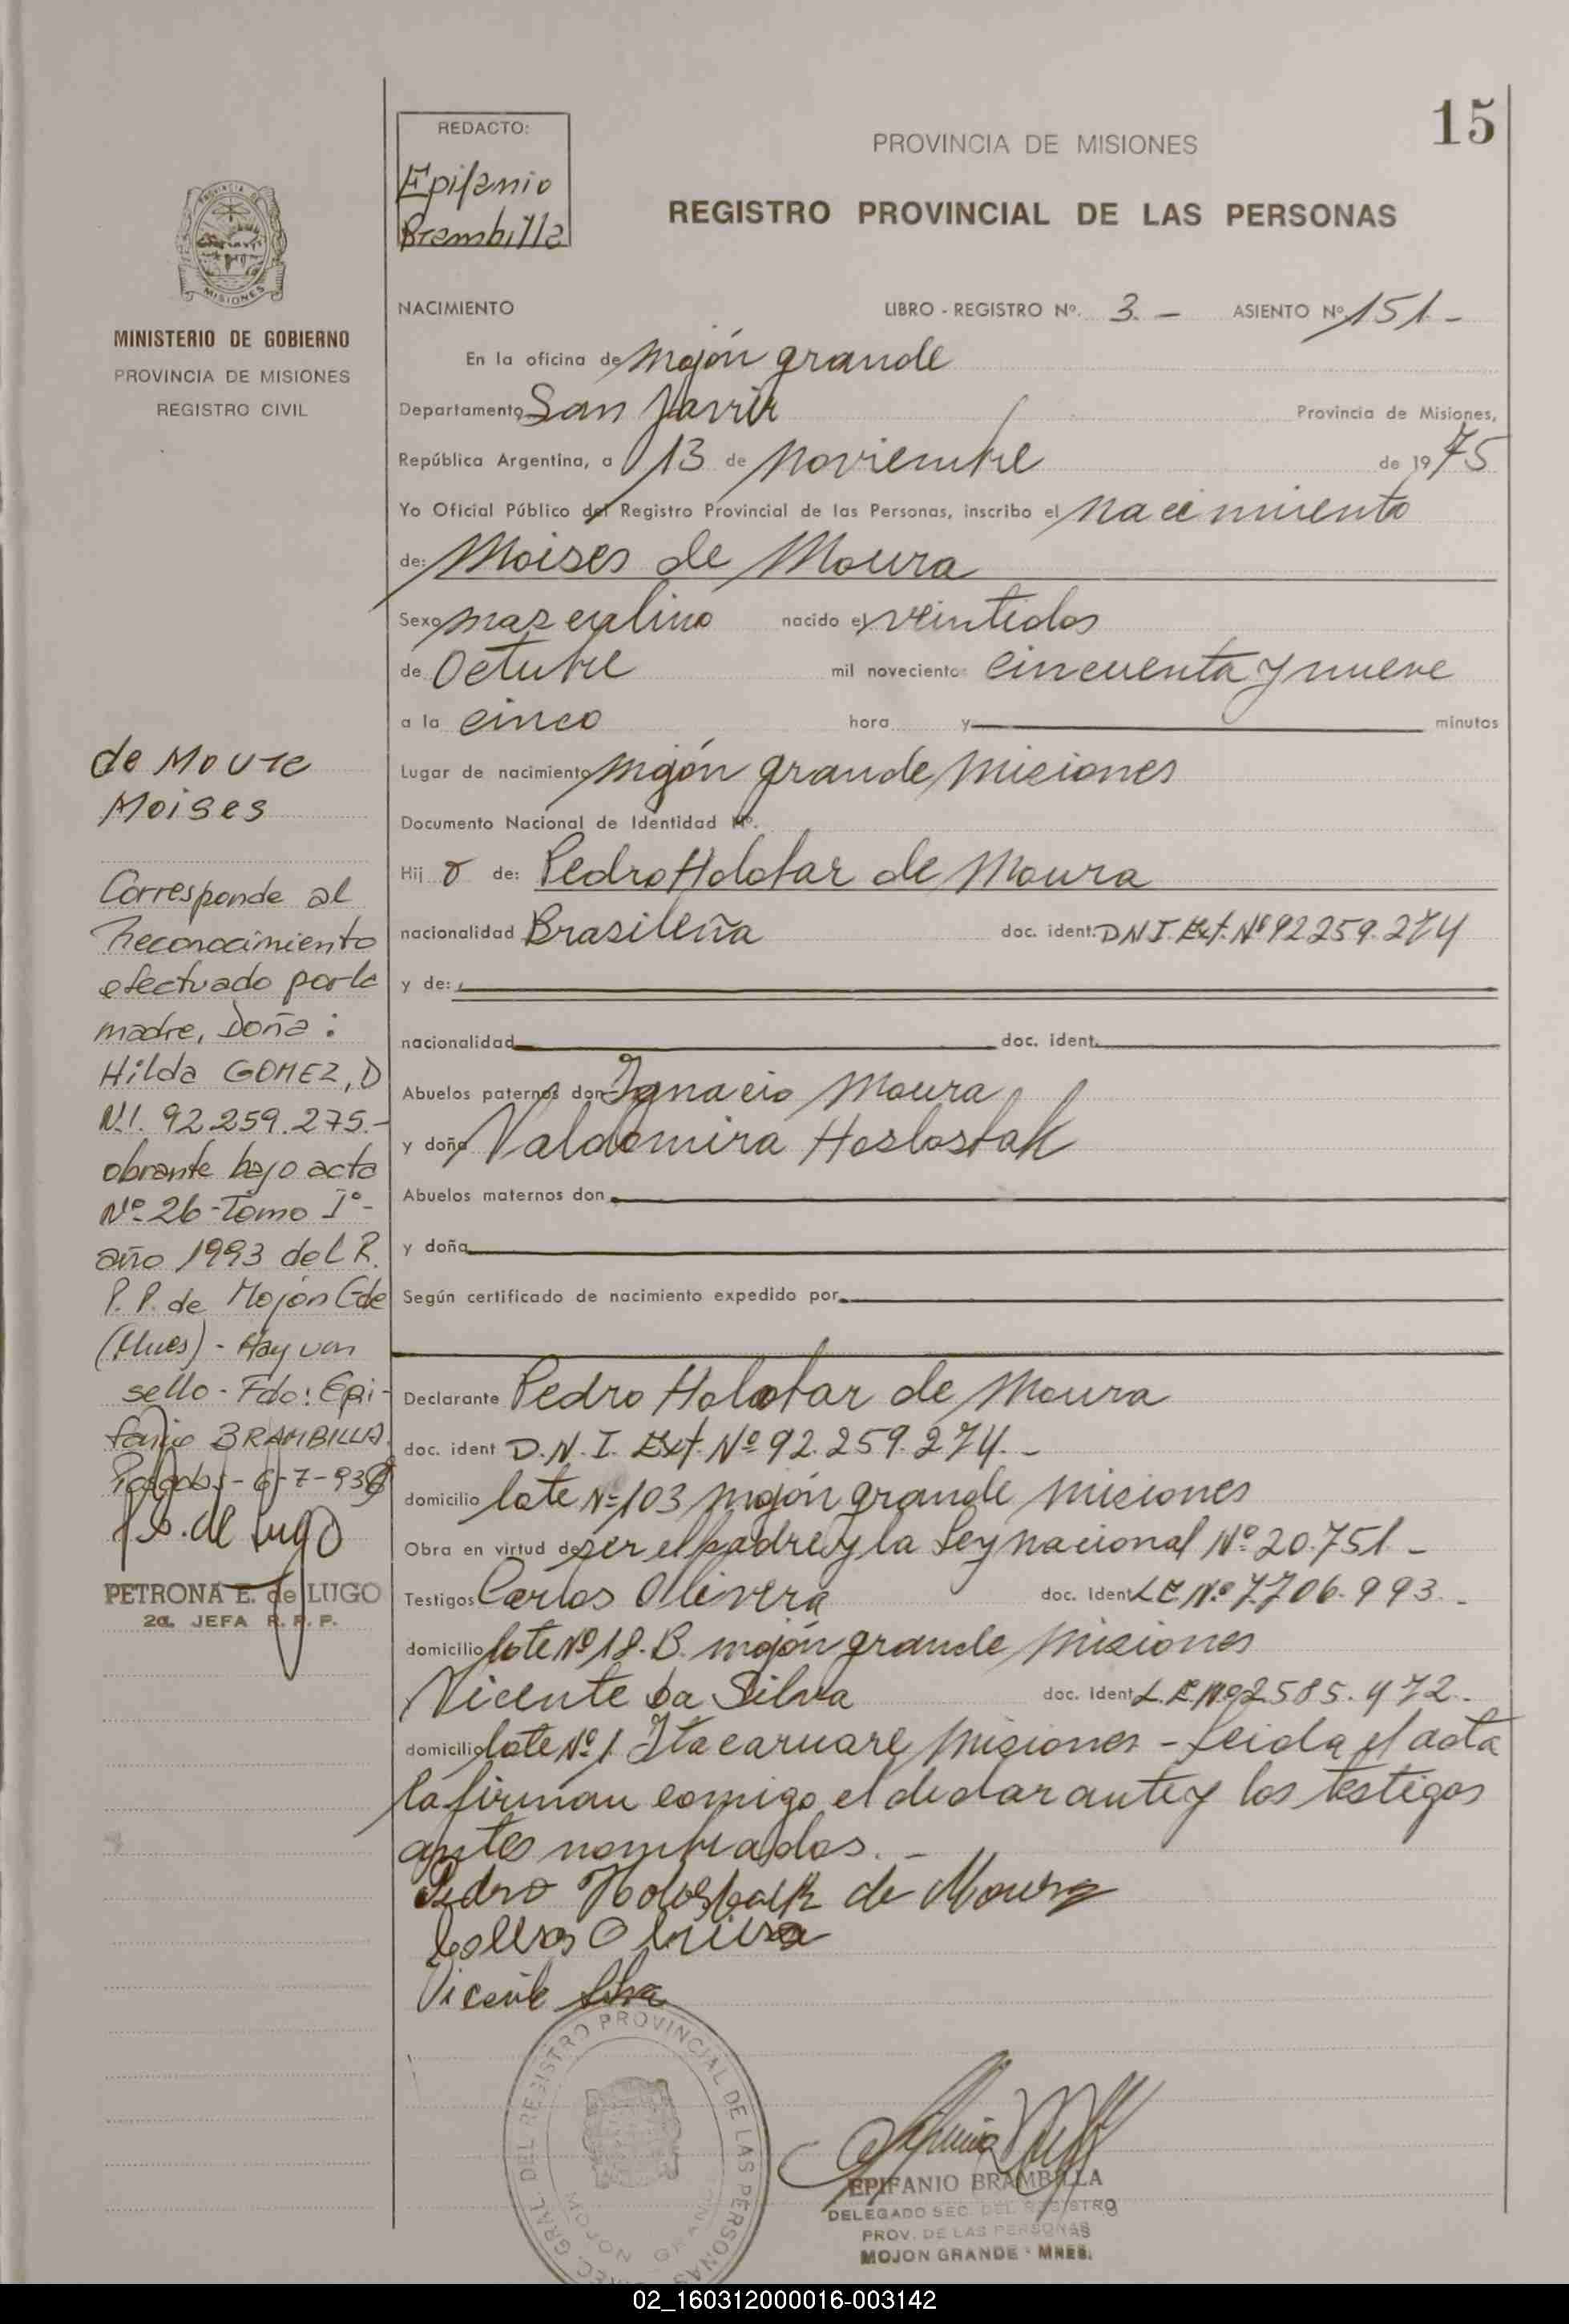 15
REDACTO:
Epifanio
Brambilla
PROVINCIA DE MISIONES
REGISTRO PROVINCIAL DE LAS PERSONAS
PROVINCIA DE
MISIONES
MINISTERIO DE GOBIERNO
PROVINCIA DE MISIONES
REGISTRO CIVIL
NACIMIENTO LIBRO - REGISTRO Nº. 3. - ASIENTO Nº 151. -
En la oficina de Mojón grande
Departamento San Javier Provincia de Misiones,
República Argentina, a 13 de Noviembre de 1975
Yo Oficial Público del Registro Provincial de las Personas, inscribo el Nacimiento
de: Moises de Moura
Sexo masculino nacido el veintidos
de Octubre mil novecientos cincuenta y nueve
a la cinco hora y minutos
Lugar de nacimiento Mojón grande Misiones
Documento Nacional de Identidad Nº.
Hij o de: Pedro Holofar de Moura
nacionalidad Brasileña doc. ident. D N I. Ext. Nº 92 259. 274
y de:
nacionalidad doc. ident.
Abuelos paternos don Ignacio Moura
y doña Valdomira Hoslostak
Abuelos maternos don
y doña
Según certificado de nacimiento expedido por
Declarante Pedro Holofar de Moura
doc. ident D. N. I. Ext. Nº 92. 259. 274. -
domicilio lote Nº 103 Mojón grande Misiones
Obra en virtud de ser el padre y la Ley nacional Nº 20.751. -
Testigos Carlos Olivera doc. Ident L E. Nº 7.706.993. -
domicilio lote Nº 18. B. mojón grande Misiones
Vicente Da Silva doc. Ident L. E. Nº 2585.472. -
domicilio lote Nº 1 Itacaruare Misiones - Leida el acta
la firman comigo el declarante y los testigos
antes nombrados. -
Pedro Holosbalk de Moura
Vicente Silva
de Moura
Moises
Corresponde al
Reconocimiento
efectuado por la
madre, Doña :
Hilda GOMEZ, D
N.I. 92.259.275.-
obrante bajo acta
Nº 26 - Tomo Iº -
año 1993 del R.
P. P. de Mojón Gde
(Mnes) - Hay un
sello - Fdo: Epi-
fanio BRAMBILLA.
Posadas - 6-7-93
P. E. de Lugo
PETRONA E. de LUGO
2a. JEFA R. P. P.
DIREC. GRAL. DEL REGISTRO PROVINCIAL DE LAS PERSONAS
MOJON GRANDE
EPIFANIO BRAMBILLA
DELEGADO SEC. DEL REGISTRO
PROV. DE LAS PERSONAS
MOJON GRANDE - MNES.
02_160312000016-003142